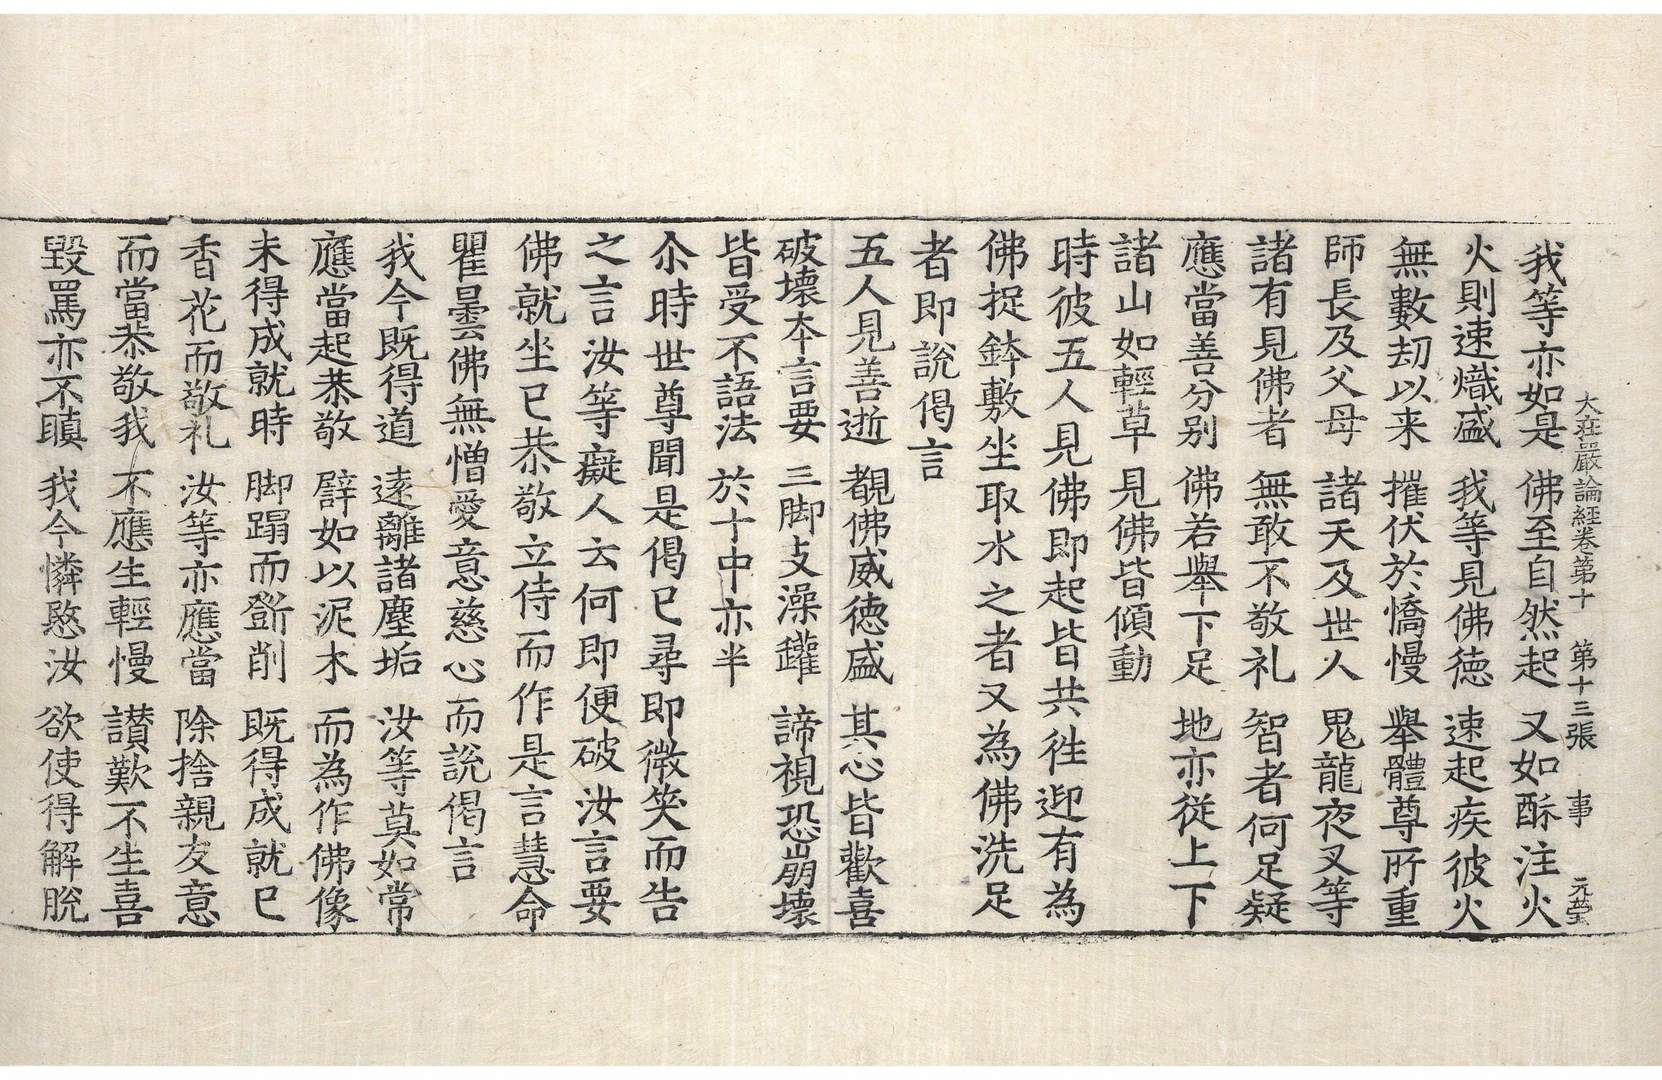 大莊嚴論経卷第十　第十三張　事　元莹
我等亦如是　佛至自然起　又如酥注火
火則速熾盛　我等見佛徳　速起疾彼火
無數劫以来　摧伏於憍慢　舉體尊所重
師長及父母　諸天及世人　鬼龍夜叉等
諸有見佛者　無敢不敬礼　智者何足疑
應當善分別　佛若舉下足　地亦従上下
諸山如輕草　見佛皆傾動
時彼五人見佛即起皆共徃迎有為
佛捉鉢敷坐取水之者又為佛洗足
者即說偈言
五人見善逝　覩佛威徳盛　其心皆歡喜
破壊本言要　三脚支澡鑵　諦視恐崩壊
皆受不語法　於十中亦半
尒時世尊聞是偈已尋即微笑而告
之言汝等癡人云何即便破汝言要
佛就坐已恭敬立侍而作是言慧命
瞿曇佛無憎愛意慈心而說偈言
我今既得道　逺離諸塵垢　汝等莫如常
應當起恭敬　譬如以泥木　而為作佛像
未得成就時　脚蹋而斵削　既得成就已
香花而敬礼　汝等亦應當　除捨親友意
而當恭敬我　不應生輕慢　讃歎不生喜
毀罵亦不瞋　我今憐愍汝　欲使得解脫